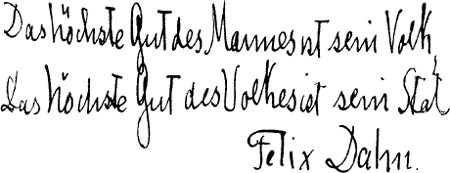 Das höchste Gut des Mannes ist sein Volk,
Das höchste Gut des Volkes ist sein Stat
Felix Dahn.